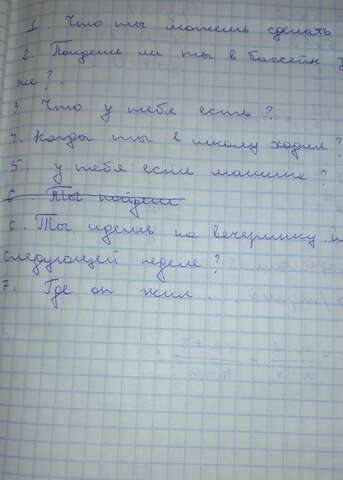 1. Что ты можешь сделать
2. Пойдешь ли ты в бассейн
же?
3. Что у тебя есть?
4. Когда ты в школу ходил?
5. У тебя есть машина?
6. Ты пойдешь
6. Ты идешь на вечеринку
следующей неделе?
7. Где он жил.